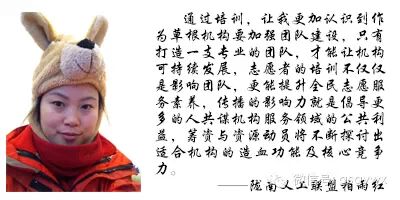 通过培训，让我更加认识到作
为草根机构要加强团队建设，只有
打造一支专业的团队，才能让机构
可持续发展，志愿者的培训不仅仅
是影响团队，更能提升全民志愿服
务素养，传播的影响力就是倡导更
多的人共谋机构服务领域的公共利
益，筹资与资源动员将不断探讨出
适合机构的造血功能及核心竞争
力。
——陇南义工联盟相雨红
微信号: